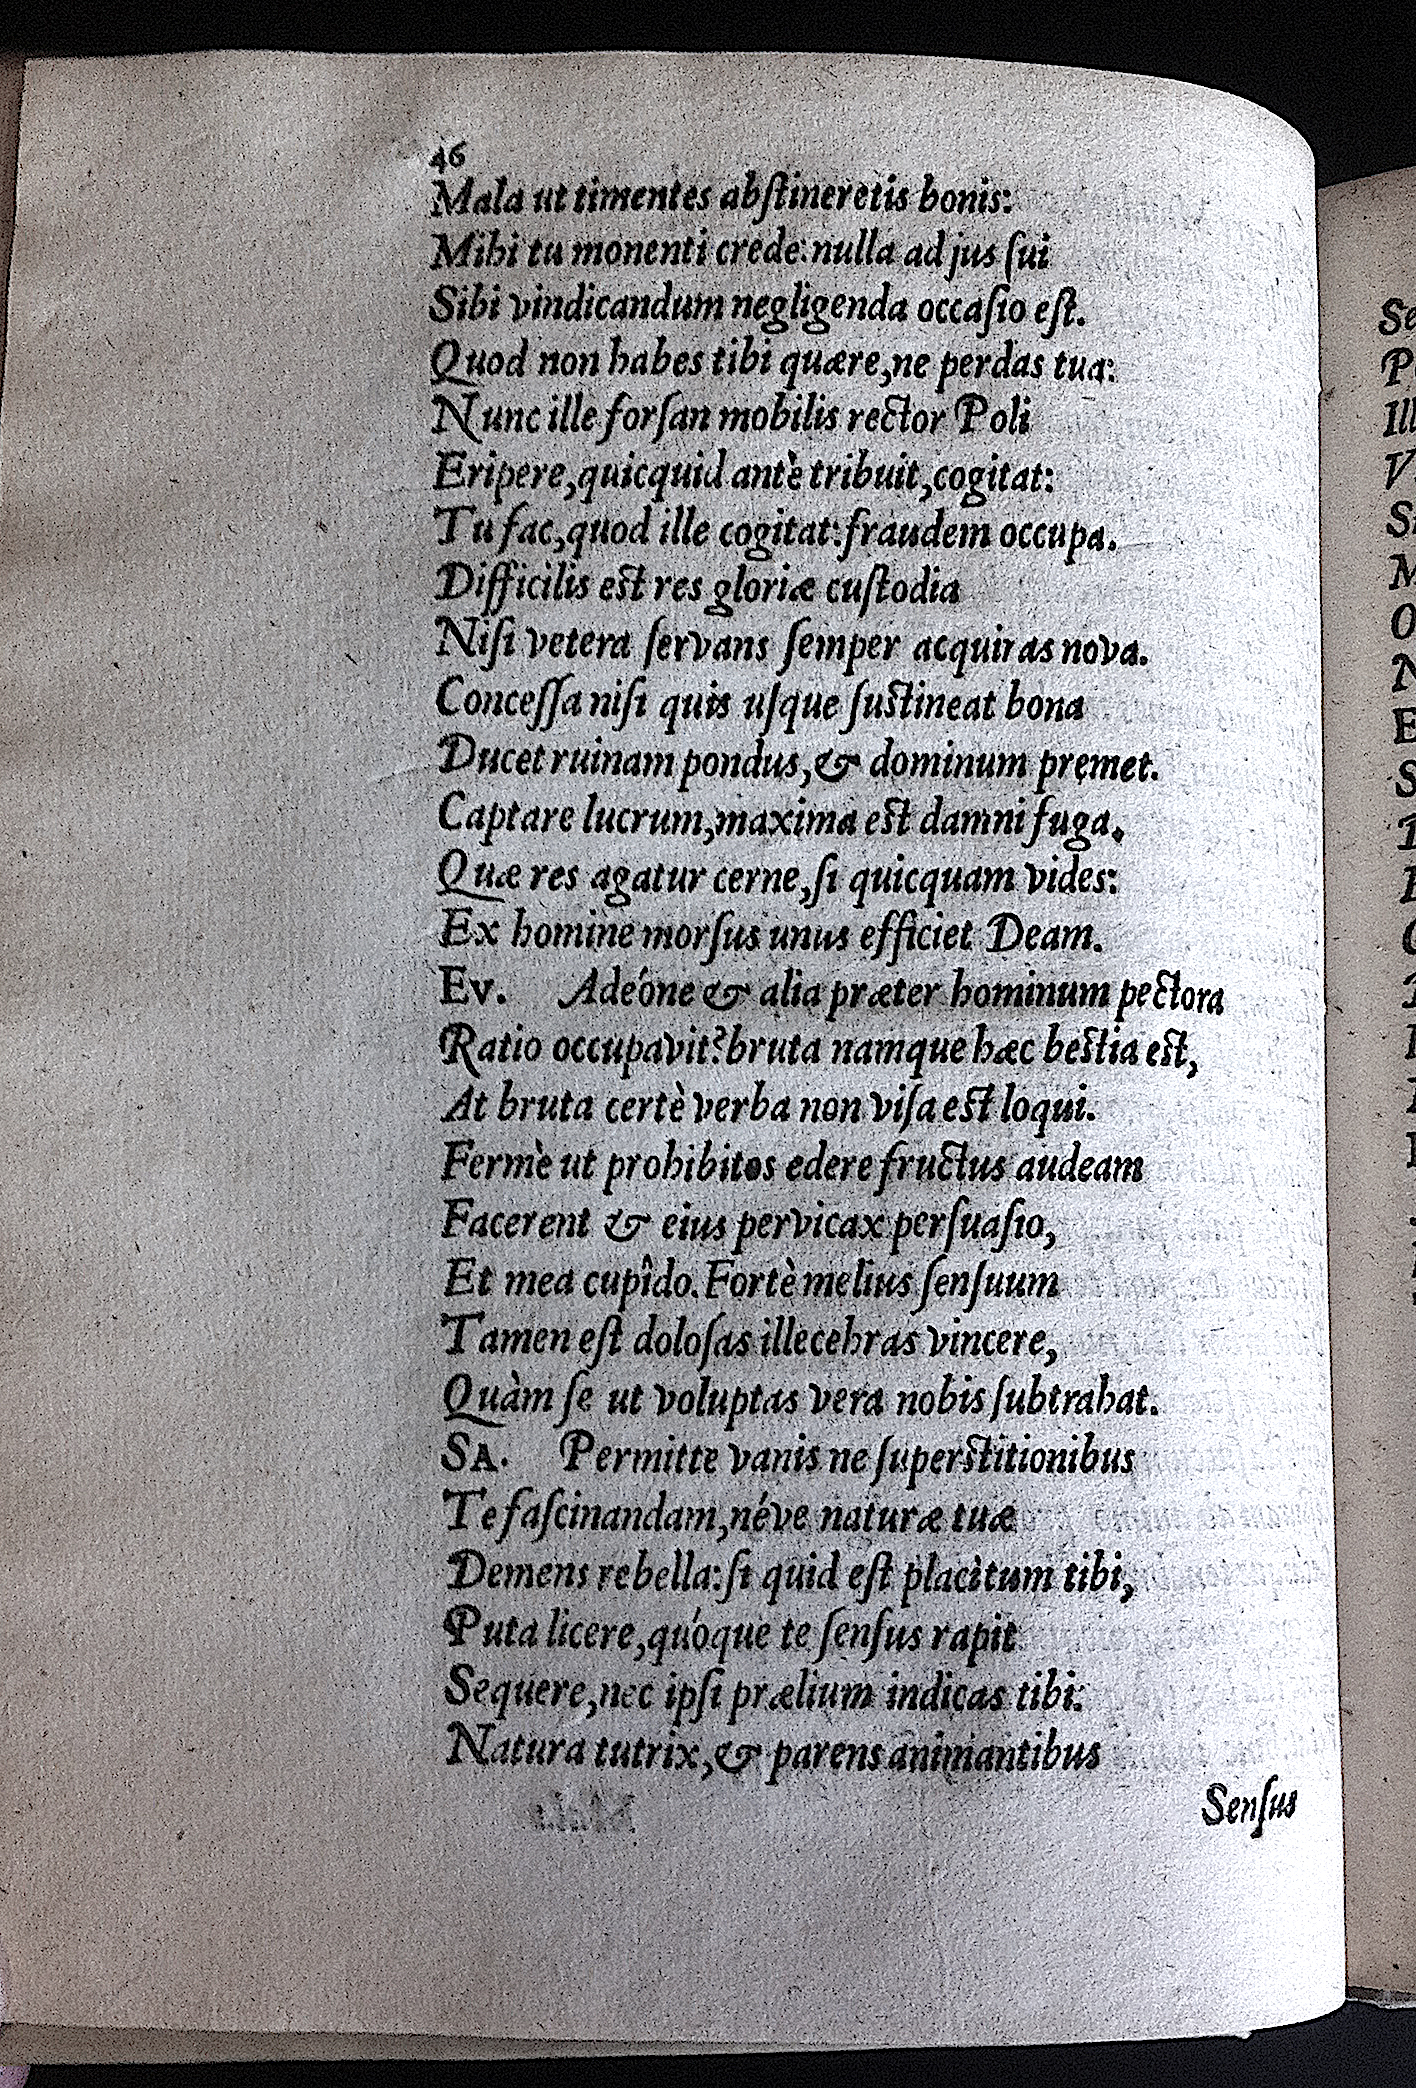 46
Mala ut timentes abſtineretis bonis:
Mihi tu monenti crede: nulla ad jus ſui
Sibi vindicandum negligenda occaſio eſt.
Quod non habes tibi quære, ne perdas tua:
Nunc ille forſan mobilis rector Poli
Eripere, quicquid antè tribuit, cogitat:
Tu fac, quod ille cogitat: fraudem occupa.
Difficilis eſt res gloriæ cuſtodia
Niſi vetera ſervans ſemper acquiras nova.
Conceſſa niſi quis uſque ſuſtineat bona
Ducet ruinam pondus, & dominum premet.
Captare lucrum, maxima eſt damni fuga.
Quæ res agatur cerne, ſi quicquam vides:
Ex homine morſus unus efficiet Deam.
Ev. Adeóne & alia præter hominum pectora
Ratio occupavit? bruta namque hæc beſtia eſt,
At bruta certè verba non viſa eſt loqui.
Fermè ut prohibitos edere fructus audeam
Facerent & eius pervicax perſuaſio,
Et mea cupîdo. Fortè melius ſenſuum
Tamen eſt doloſas illecebras vincere,
Quàm ſe ut voluptas vera nobis ſubtrahat.
SA. Permitte vanis ne ſuperſtitionibus
Te faſcinandam, néve naturæ tuæ
Demens rebella: ſi quid eſt placitum tibi,
Puta licere, quóque te ſenſus rapit
Sequere, nec ipſi prælium indicas tibi:
Natura tutrix, & parens animantibus
Senſus
Se
P
Ill
V
S
M
O
N
E
S